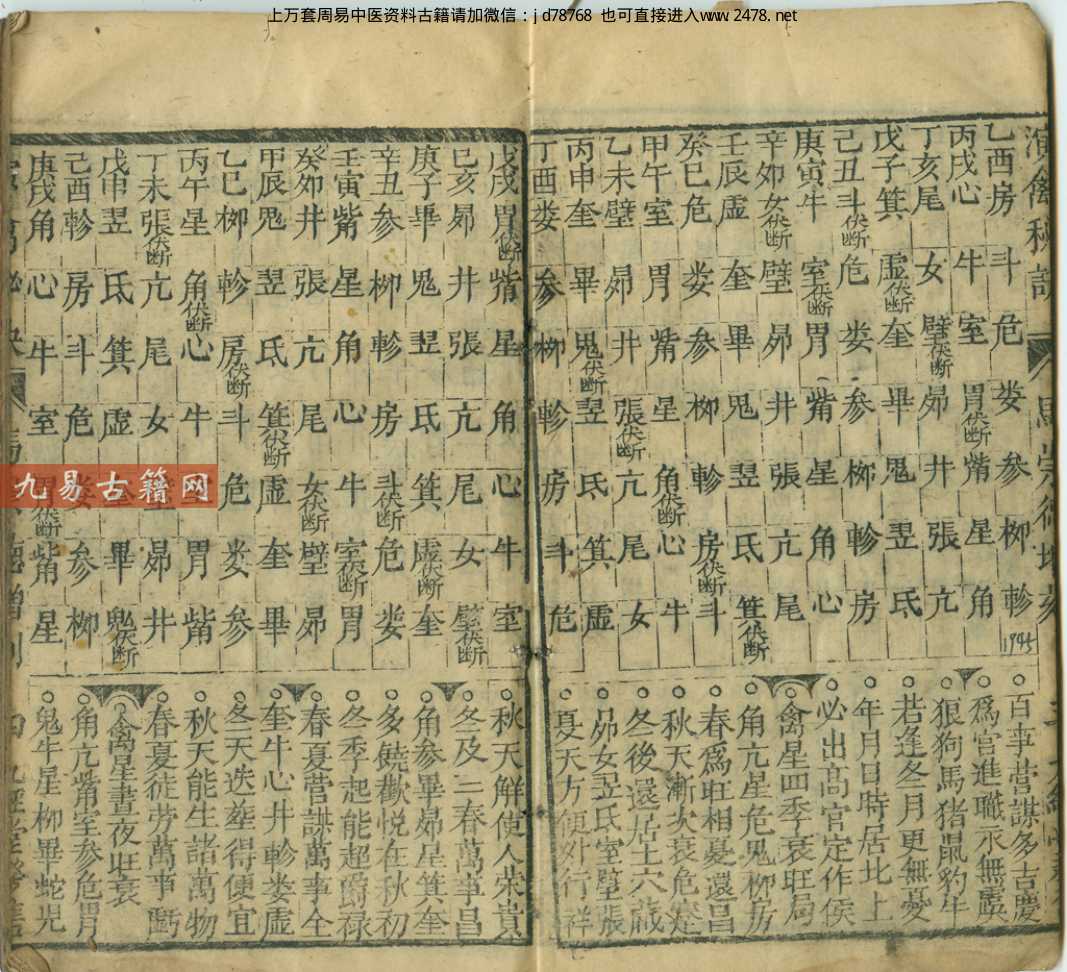 上万套周易中医资料古籍请加微信：jd78768 也可直接进入www.2478.net
演禽秘訣 馬崇德增刻
乙酉房 斗 危 娄 参 柳 軫
丙戌心 牛 室 胃伏断 觜 星 角
丁亥尾 女 壁伏断 昴 井 張 亢
戊子箕 虛伏断 奎 畢 鬼 翌 氐
己丑斗伏断 危 娄 参 柳 軫 房
庚寅牛 室伏断 胃 觜 星 角 心
辛夘女伏断 壁 昴 井 張 亢 尾
壬辰虛 奎 畢 鬼 翌 氐 箕伏断
癸巳危 娄 参 柳 軫 房伏断 斗
甲午室 胃 觜 星 角伏断 心 牛
乙未壁 昴 井 張伏断 亢 尾 女
丙申奎 畢 鬼伏断 翌 氐 箕 虛
丁酉娄 参 柳 軫 房 斗 危
1945
百事营謀多吉慶
為官進職示無虞
狼狗馬猪鼠豹牛
若逢冬月更無憂
年月日時居北上
必出高官定作侯
禽星四季衰旺局
角亢星危鬼柳房
春為旺相夏還昌
秋天漸次衰危定
冬後還居土穴藏
昴女翌氐室壁張
夏天方便外行祥
戊戌胃伏断 觜 星 角 心 牛 室
己亥昴 井 張 亢 尾 女 壁伏断
庚子畢 鬼 翌 氐 箕 虛伏断 奎
辛丑参 柳 軫 房 斗伏断 危 娄
壬寅觜 星 角 心 牛 室伏断 胃
癸夘井 張 亢 尾 女伏断 壁 昴
甲辰鬼 翌 氐 箕伏断 虛 奎 畢
乙巳柳 軫 房伏断 斗 危 娄 参
丙午星 角伏断 心 牛 胃 觜
丁未張伏断 亢 尾 女 昴 井
戊申翌 氐 箕 虛 畢 鬼伏断
己酉軫 房 斗 危 娄 参 柳
庚戌角 心 牛 室 胃伏断 觜 星
秋天解使人荣貴
冬及三春萬事昌
角参畢昴星箕奎
多饒歡悦在秋初
冬季起能超爵禄
春夏营謀萬事全
奎牛心井軫娄虛
冬天迭蕐得便宜
秋天能生諸萬物
春夏徒劳萬事虧
禽星晝夜旺衰
角亢觜室参危胃
鬼牛星柳畢蛇児
九易古籍网